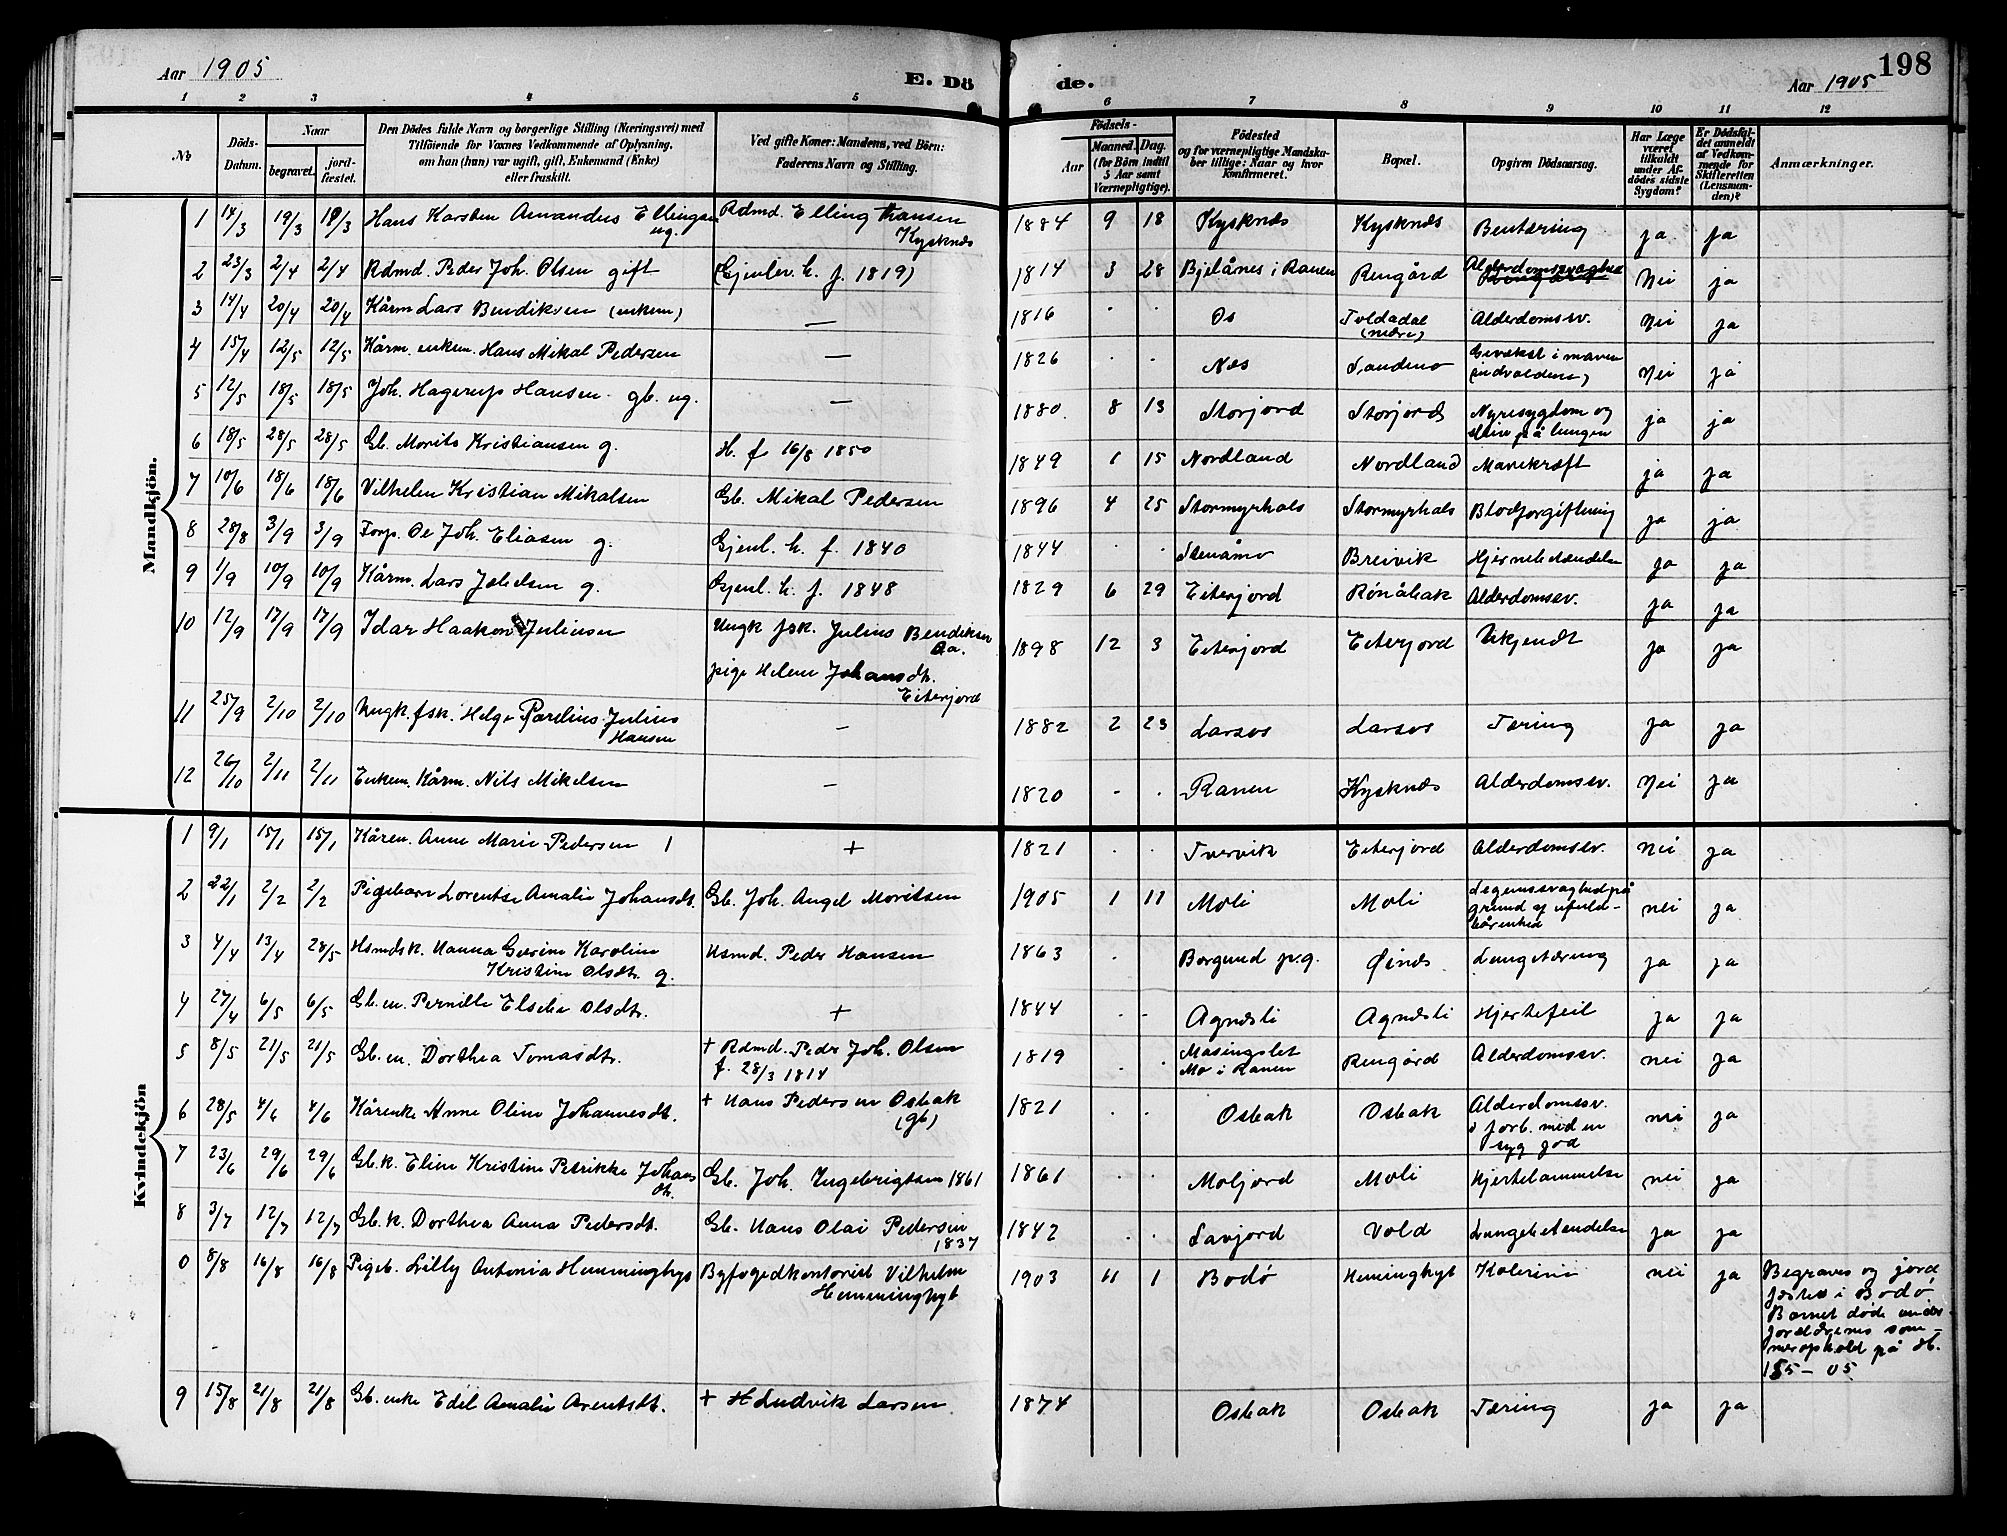 Aar 1905
E. Dö de.
198
Aar 1905
1 2 3 4 5 6 7 8 9 10 11 12
No
Döds-Datum.
Naar
begravet.
jord-fæstet.
Den Dödes fulde Navn og borgerlige Stilling (Næringsvei) med
Tilföiende for Voxnes Vedkommende af Oplysning,
om han (hun) var ugift, gift, Enkemand (Enke)
eller fraskilt.
Ved gifte Koner: Mandens, ved Börn:
Faderens Navn og Stilling.
Födsels-
Aar
Maaned. Dag.
(for Börn indtil
5 Aar samt
Værnepligtige).
Födested
og for værnepligtige Mandska-
ber tillige: Naar og hvor
Konfirmeret.
Bopæl.
Opgiven Dödsaarsag.
Har Læge
været
tilkaldt
under Af-
dödes sidste
Sygdom?
Er Dödsfal-
det anmeldt
af Vedkom-
mende for
Skifteretten
(Lensman-
den)?
Anmærkninger.
Mandkjön.
1 14/3 19/3 19/3 Hans Karsten Amandus Ellingsen ug. Rdmd. Elling Hansen Kysknæs 1884 9 18 Kysknæs Kysknæs Bentæring ja ja
2 23/3 2/4 2/4 Rdmd. Peder Joh. Olsen gift (Gjenlev. h. f. 1819) 1814 3 28 Bjelånes i Ranen Rengård Alderdomssvaghed Nei ja
3 14/4 20/4 20/4 Kårm Lars Bendiksen (enkem) — 1816 . . Os Toldådal (nedre) Alderdomssv. Nei ja
4 15/4 12/5 12/5 Kårm. enkem. Hans Mikal Pedersen — 1826 . . Nes Sandmo Gevækst i maven (indvoldene) Nei ja
5 12/5 18/5 18/5 Joh. Hagerup Hansen gb. ug. — 1880. 8 13 Storjord Storjord Nyresygdom og slim på lungen ja ja
6 18/5 28/5 28/5 Gb. Morits Kristiansen g. H. f 16/8 1850 1849 1 15 Nordland Nordland Mavekræft ja ja
7 10/6 18/6 18/6 Vilhelm Kristian Mikalsen Gb. Mikal Pedersen 1896 4 25 Stormyrhals Stormyrhals Blodforgiftning ja ja
8 28/8 3/9 3/9 Forp. Ole Joh. Eliasen g. Gjenl. h. f. 1840 1844 . . Stenåmo Breivik Hjernebetændelse ja ja
9 1/9 10/9 10/9 Kårm. Lars Jakelsen g. Gjenl. h. f. 1848 1829 6 29 Eiterjord Rønåbak Alderdomssv. ja ja
10 12/9 17/9 17/9 Idar Haakon Juliussen Ungk fsk. Julius Bendiksen Aa.
pige Helene Johansdt. Eiterjord 1898 12 3 Eiterjord Eiterjord Ukjendt ja ja
11 25/9 2/10 2/10 Ungk. fsk. Helge Parelius Julius Hansen — 1882 2 23 Larsos Larsos Tæring ja ja
12 26/10 2/11 2/11 Enkem. Kårm. Nils Mikelsen — 1820 . . Ranen Kysknæs Alderdomssv. Nei ja
Kvindekjön
1 9/1 15/1 15/1 Kåren. Anne Marie Pedersen + 1821 . . Tvervik Eiterjord Alderdomssv. nei ja
2 22/1 2/2 2/2 Pigebarn Lorentse Amalie Johansdt. Gb. Joh. Angel Moritsen 1905 1 11 Moli Moli Legemssvaghed på grund af ufuld-bårenhed nei ja
3 4/4 13/4 28/5 Hsmdsk. Hanna Gurine Karoline Kristine Olsdt. g. Hsmd. Peder Hansen 1863 . Borgund p.g. Øinæs Lungetæring ja ja
4 27/4 6/5 6/5 Gb. en. Pernille Elsebe Olsdt. + 1844 . . Agnæsli Agnæsli Hjertefeil ja ja
5 8/5 21/5 21/5 Gb. en. Dorthea Tomasdt. + Rdmd. Peder Joh. Olsen f. 28/3 1814 1819 . . Masingslet Mo i Ranen Rengård Alderdomssv. nei ja
6 28/5 4/6 4/6 Kårenke Anne Oline Johannesdt. + Hans Pedersen Osbak (gb) 1821 . . Osbak Osbak Alderdomssv. i forb. med en syg fod nei ja
7 23/6 29/6 29/6 Gb.k. Eline Kristine Petrikke Johansdt. Gb. Joh. Ingebrigtsen 1861 1861 . . Moljord Moli Hjertelammelse nei ja
8 3/7 12/7 12/7 Gb.k. Dorthea Anna Pedersdt. Gb. Hans Olai Pedersen 1837 1842 . . Savjord Vold Lungebetændelse ja ja
0 8/8 16/8 16/8 Pigeb. Lilly Antonia Hemminghyt Byfogedkontorist Vilhelm Hemminghyt 1903 11 1 Bodø Heminghyt Kolerine nei ja Begraves og jord
fæstes i Bodø
Barnet døde under
forældrenes som-
merophold på St.
155 - 05
9 15/8 21/8 21/8 Gb. enke Edel Amalie Arentsdt. + H Ludvik Larsen 1874 Osbak Osbak Tæring ja ja